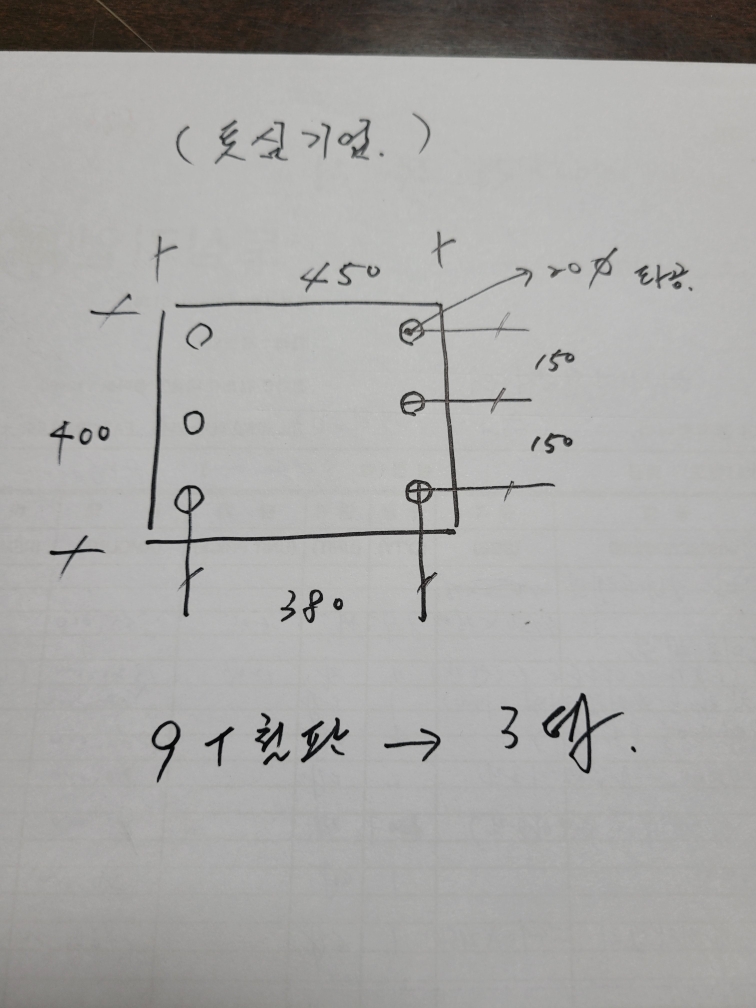 (톳심기업.)
450
20ø 타공.
150
400
150
380
9T 철판 → 3매.